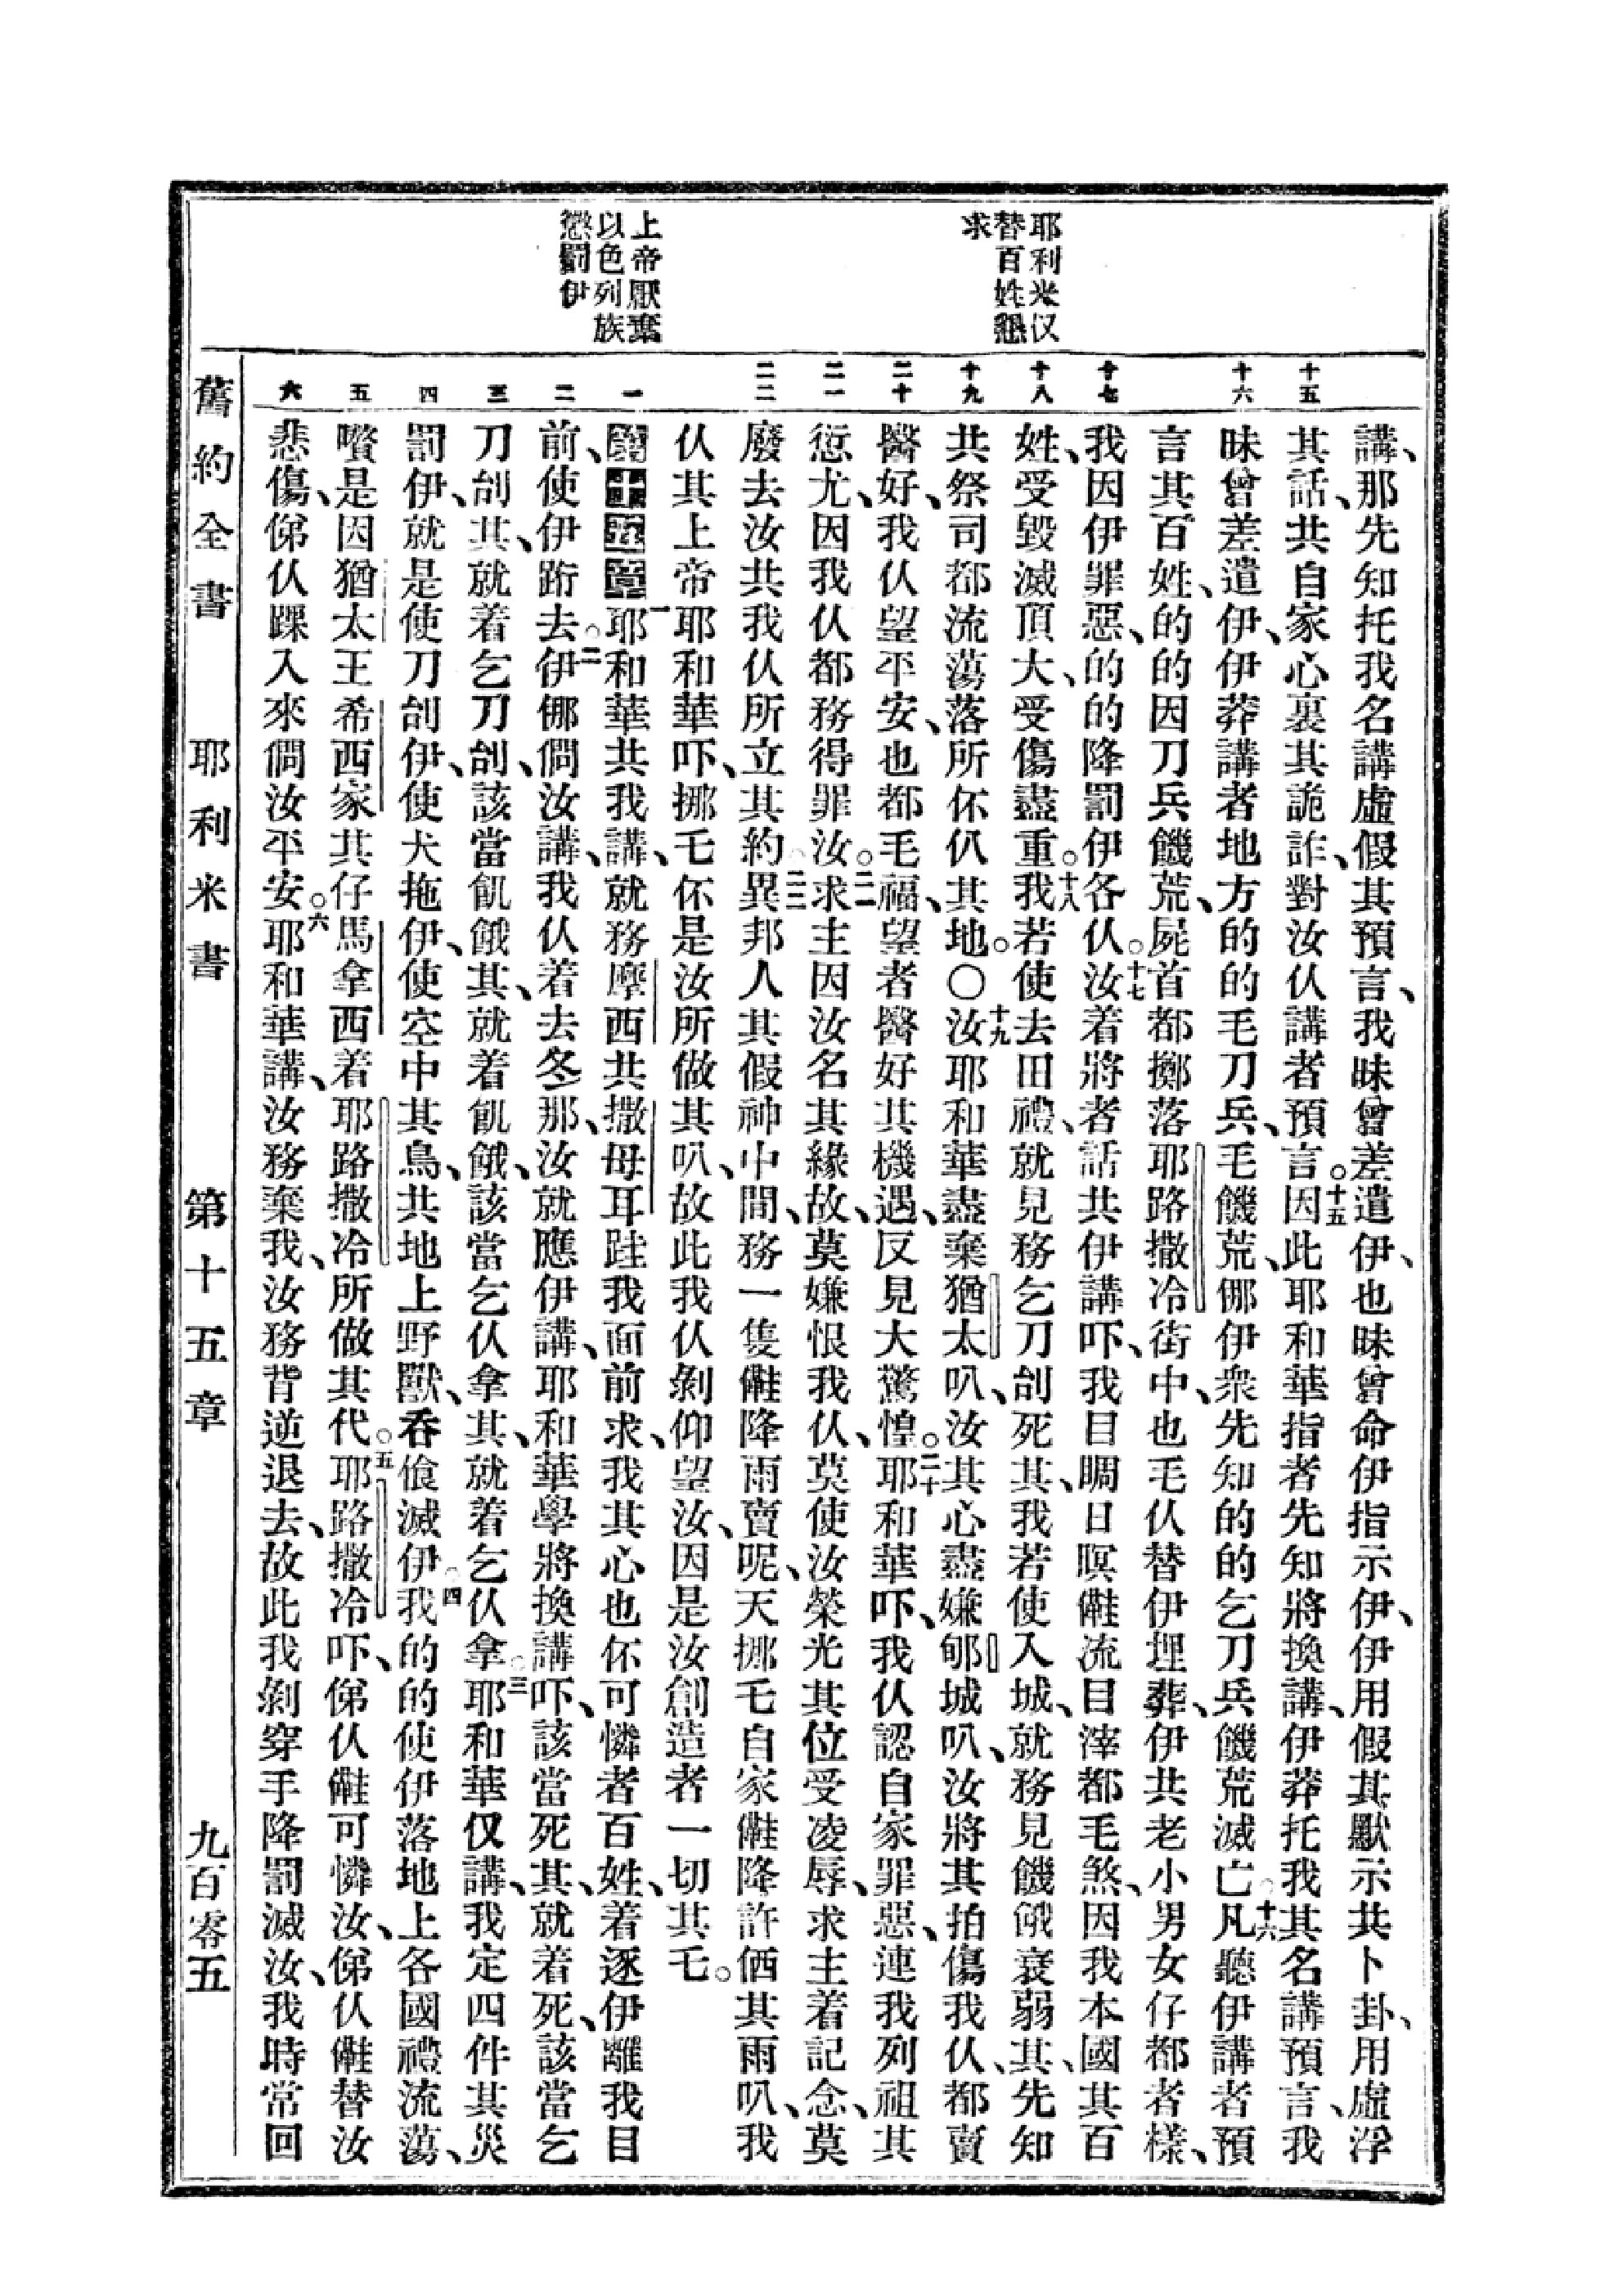 耶利米仅
替百姓懇
求
上帝厭棄
以色列族
懲罰伊
十五
十六
十七
十八
十九
二十
二一
二二
一
二
三
四
五
六
講、那先知托我名講虛假其預言、我昧曾差遣伊、也昧曾命伊指示伊、伊用假其默示共卜卦、用虛浮
其話、共自家心裏其詭詐、對汝仈講者預言。十五因此耶和華指者先知將換講、伊莽托我其名講預言、我
昧曾差遣伊、伊莽講者地方的的毛刀兵、毛饑荒、㑚伊衆先知的的乞刀兵饑荒滅亡。十六凡聽伊講者預
言其百姓、的的因刀兵饑荒、屍首都擲落耶路撒冷街中、也毛仈替伊埋葬、伊共老小男女仔都者樣、
我因伊罪惡、的的降罰伊各仈。十七汝着將者話共伊講吓、我目睭日暝𣍐流目滓都毛煞、因我本國其百
姓、受毀滅頂大、受傷盡重。十八我若使去田禮、就見務乞刀刣死其、我若使入城、就務見饑餓衰弱其、先知
共祭司都流蕩落所伓仈其地。〇十九汝耶和華盡棄猶太叭、汝其心盡嫌郇城叭、汝將其拍傷我仈、都賣
醫好、我仈望平安、也都毛福、望者醫好其機遇、反見大驚惶。二十耶和華吓、我仈認自家罪惡、連我列祖其
愆尤、因我仈都務得罪汝。二一求主因汝名其緣故、莫嫌恨我仈、莫使汝榮光其位受凌辱、求主着記念、莫
廢去汝共我仈所立其約。二二異邦人其假神中間、務一隻𣍐降雨賣呢、天挪毛自家𣍐降許価其雨叭、我
仈其上帝耶和華吓、挪毛伓是汝所做其叭、故此我仈剝仰望汝、因是汝創造者一切其毛。
第十五章一耶和華共我講、就務摩西共撒母耳跬我面前求、我其心也伓可憐者百姓、着逐伊離我目
前、使伊跻去。二伊㑚㑚汝講、我仈着去冬那、汝就應伊講、耶和華學將換講吓、該當死其、就着死、該當乞
刀刣其、就着乞刀刣、該當飢餓其、就着飢餓、該當乞仈拿其、就着乞仈拿。三耶和華仅講、我定四件其災
罰伊、就是使刀刣伊、使犬拖伊、使空中其鳥、共地上野獸、吞飡滅伊。四我的的使伊落地上各國禮流蕩、
嚽是因猶太王希西家其仔馬拿西着耶路撒冷所做其代。五耶路撒冷吓、俤仈𣍐可憐汝、俤仈𣍐替汝
悲傷、俤仈踝入來㑚汝平安。六耶和華講、汝務棄我、汝務背逆退去、故此我剝穿手降罰滅汝、我時常回
舊約全書　耶利米書　第十五章　九百零五